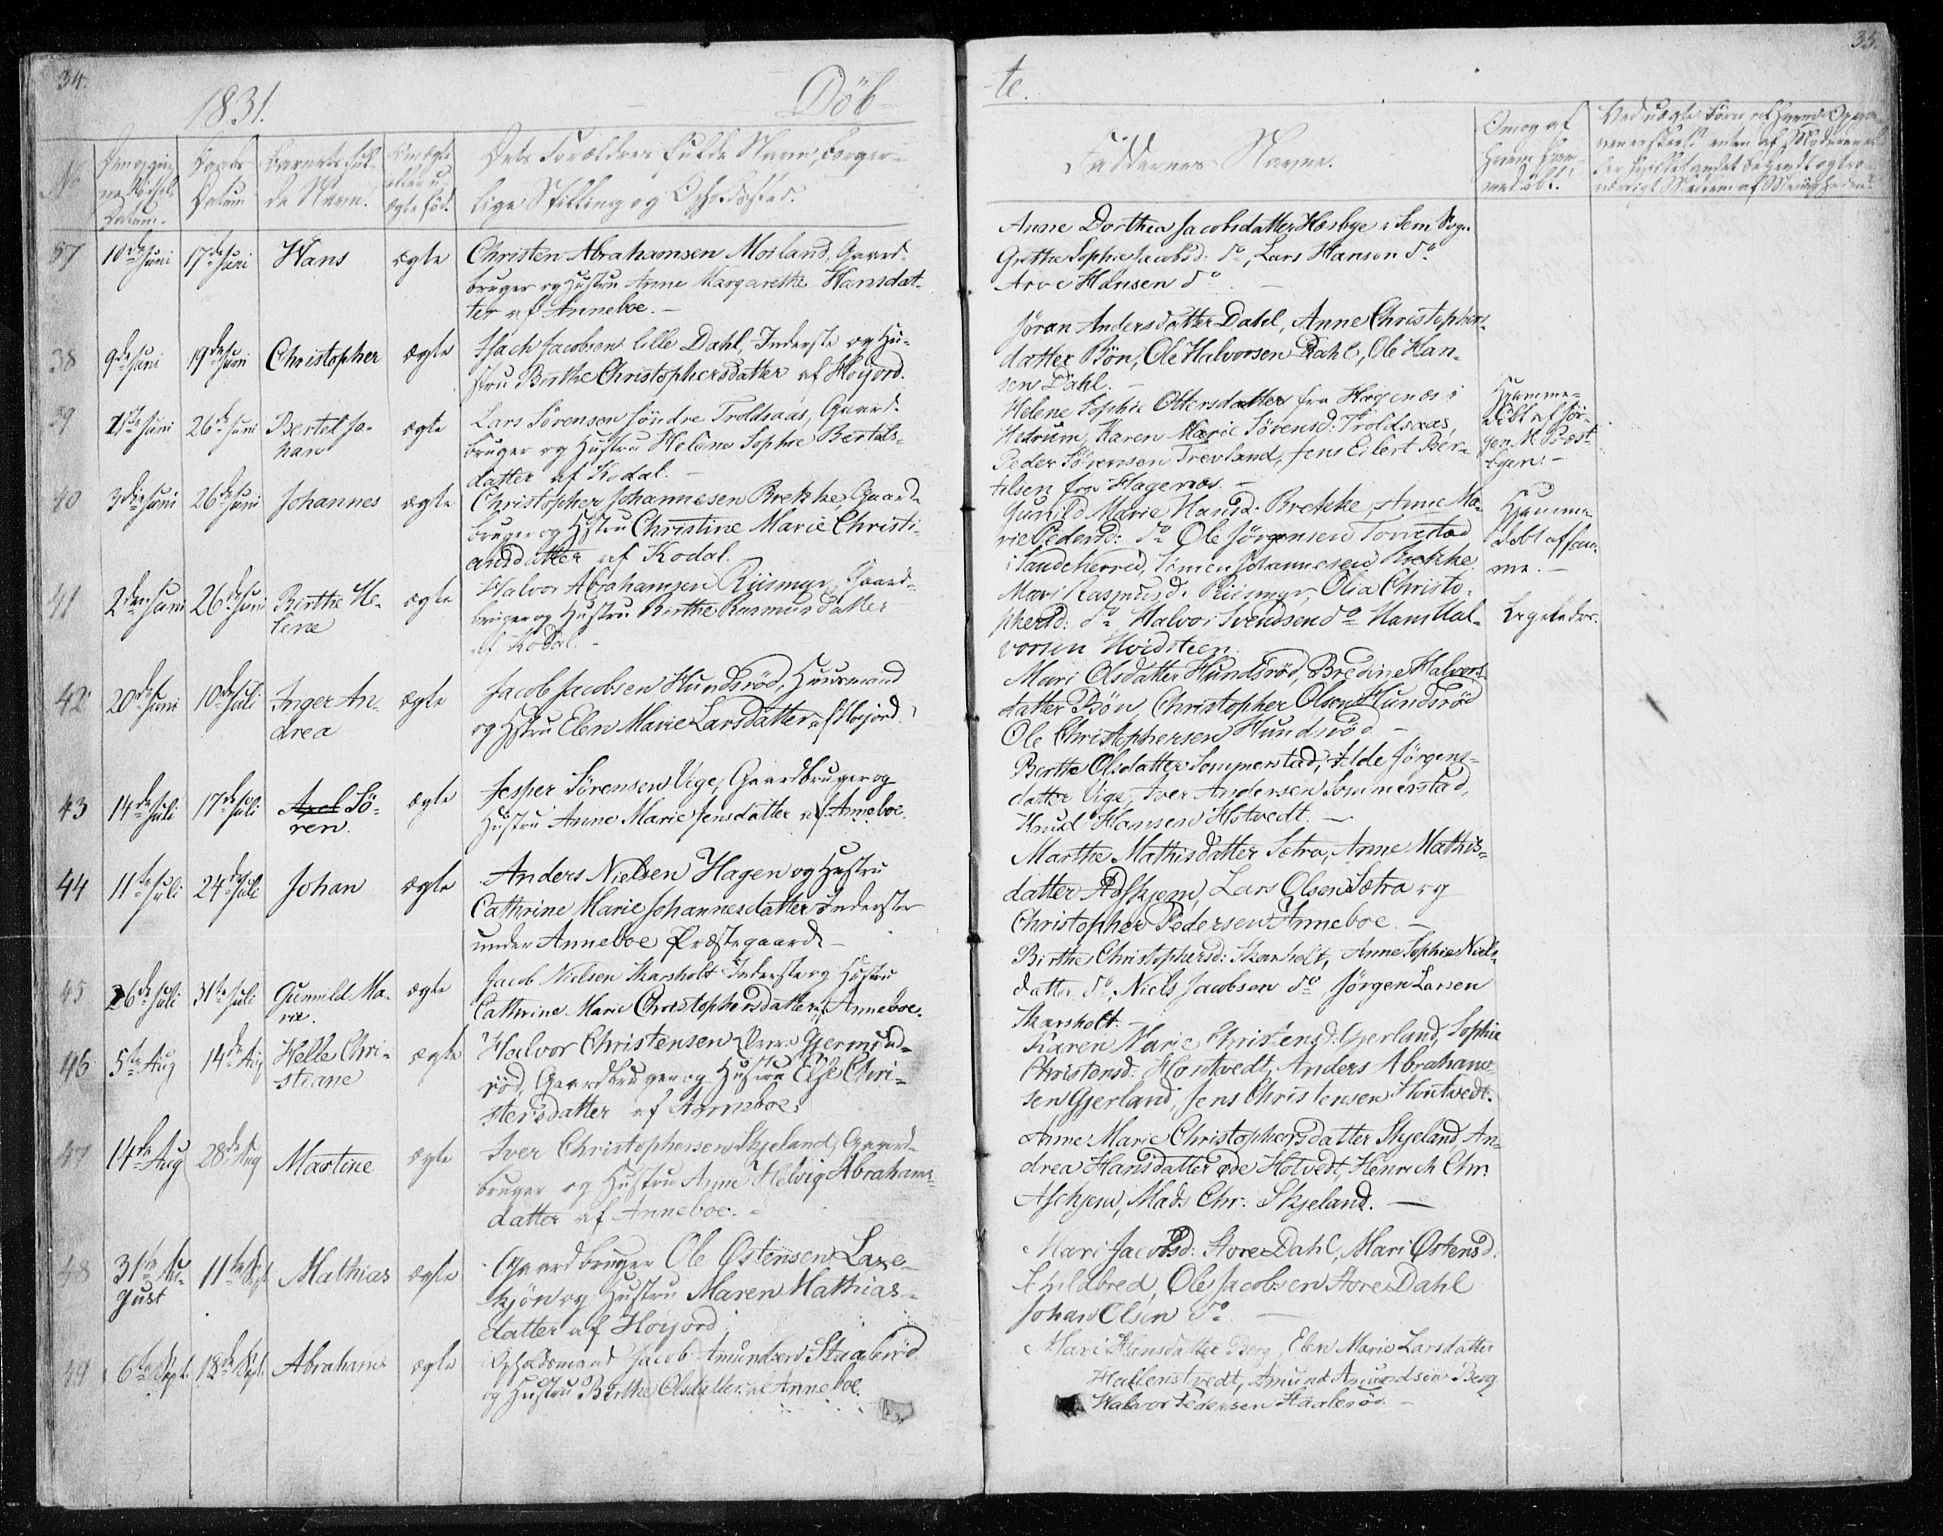 34.
1831.
Döb-
te.
35.
No
Dets Forældres fulde Navn, borger-
lige Stilling og Opholdssted.
Faddernes Navne.
Om og af
Hvem hjem-
medøbt.
37 10de Juni 17de Juni Hans ægte Christen Abrahamsen Moland, Gaard-
bruger og Hustru Anne Margarethe Hansdat-
ter af Anneboe. -
Anne Dorthea Jacobsdatter Hæsbye i Sem Sogn
Grethe Sophie Jacobsd: do, Lars Hansen do
Arve Hansen do -
38 9de Juni 19de Juni Christopher ægte Isach Jacobsen lille Dahl, Inderste og Hu-
stru Birthe Christophersdatter af Høijord.
Jøran Andersdatter Dahl, Anne Christophers-
datter Bøn, Ole Halvorsen Dahl, Ole Han-
sen Dahl. -
39 Juni 26de Juni Bertel Jo-
han ægte Lars Sörensen Söndre Troldsaas, Gaard-
bruger og Hustru Helene Sophie Bertels-
datter af Kodal. -
Helene Sophie Ottersdatter fra Hagenæs i
Hedrum, Karen Marie Sörensd: Troldsaas,
Peder Sörensen Trevland, Jens Eilert Ber-
telsen fra Hagenæs. -
Hjemme-
döbt af Jør-
gen M. Præst-
byen. -
40 3die Juni 26de Juni Johannes ægte Christopher Johannesen Brekke, Gaard-
bruger og Hstru Christine Marie Christi-
ansdatter af Kodal. -
Gunild Marie Hansd. Brekke, Anne Ma-
rie Pedersd: do Ole Jörgensen Tomstad
i Sandeherred, Simen Johannesen Brekke.
Hjemme-
döbt af sam-
me. -
41 2den Juni 26de Juni Birthe He-
lene ægte Halvor Abrahamsen Riismyr, Gaard-
bruger og Hustru Birthe Rasmusdatter
af Kodal. -
Mari Rasmusd. Riismyr, Olia Christo-
phersd: do Halvor Svendsen do Hans Hal-
vorsen Hvidsteen.
Ligeledes.
42 20de Juni 10de Juli Inger An-
drea ægte Jacob Jacobsen Hundsröd, Huusmand
og Hstru Elen Marie Larsdatter af Høijord.
Mari Olsdatter Hundsröd, Bredine Halvors-
datter Bön, Christopher Olsen Hundsröd
Ole Christophersen Hundsröd -
43 14de Juli 17de Juli Axel Sö-
ren. ægte Jesper Sörensen Vige, Gaardbruger og
Hustru Anne Marie Jensdatter af Anneboe.
Berthe Olsdatter Sommerstad, Jörgens-
datter Vige, Iver Andersen Sommerstad,
Knud Hansen Hotvedt. -
44 11te Juli 24de Juli Johan ægte Anders Nielsen Hagen og Hustru
Cathrine Marie Johannesdatter Inderster
under Anneboe Præstegaard -
Marthe Mathisdatter Setra, Anne Mathis-
datter Adskjem, Lars Olsen Sætra og
Christopher Pedersen Anneboe. -
45 26de Juli 31te Juli Gunild Ma-
rie. ægte Jacob Nielsen Skarsholt Inderste og Hustru
Cathrine Marie Christophersdatter af Anneboe.
Birthe Christophersd: Skarsholt, Anne Sophie Niels-
datter do, Niels Jacobsen do Jörgen Larsen
Skarsholt. -
46 5te Aug 14de Aug Helle Chri-
stiane ægte Halvor Christensen Germund-
röd, Gaardbruger og Hustru Else Chri-
stensdatter af Anneboe.
Karen Marie Christensd: Gjerland, Sophie
Christensd: Hontvedt, Anders Abraham-
sen Gjerland, Jens Christensen Hontvedt.
47 14de Aug 28de Aug Martine ægte Iver Christophersen Skjeland, Gaard-
bruger og Hustru Anne Helvig Abrahams-
datter af Anneboe. -
Anne Marie Christophersdatter Skjeland, An-
drea Hansdatter øde Hotvedt, Henrich Chr:
Aschjem, Mads Chr: Skjeland. -
48 31te Au-
gust 11te Sept Mathias ægte Gaardbruger Ole Östensen Laxe-
skjön og Hustru Maren Mathias-
datter af Høijord
Mari Jacobsd: Store Dahl, Mari Östensd:
Skildbred, Ole Jacobsen Store Dahl
Johan Olsen do. -
49 6te Sept. 18de Sept. Abraham ægte Opholdsmand Jacob Amundsen Staaleröd
og Hustru Birthe Olsdatter af Anneboe.
Mari Hansdatter Berg, Elen Marie Larsdatter
Hallenstvedt, Amund Amundsen Berg
Halvor Pedersen Staaleröd. -